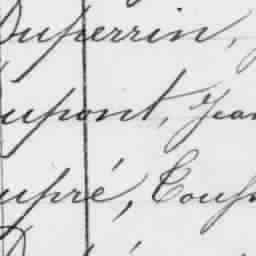 Duperrin,
upont, Jean
upré,